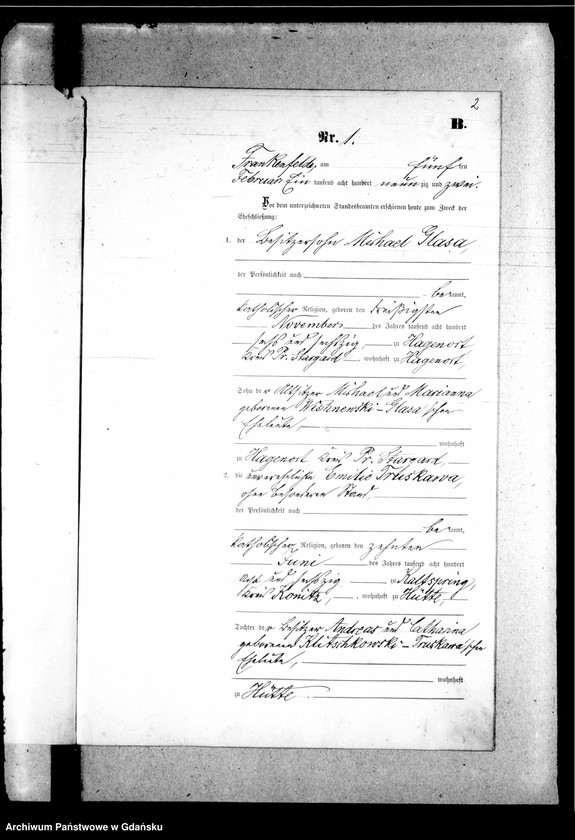 2
B.
Nr. 1.
Frankenfelde, am fünften
Februar Ein tausend acht hundert neunzig und zwei.
Vor dem unterzeichneten Standesbeamten erschienen heute zum Zweck der
Eheschließung:
1. der Besitzersohn Michael Glasa,
der Persönlichkeit nach
bekannt,
katholischer Religion, geboren den dreißigsten
November des Jahres tausend acht hundert
sechs und sechszig, zu Hagenort
Kreis Pr. Stargard, wohnhaft zu Hagenort,
Sohn der Altsitzer Michael und Marianna
geborenen Wishnewski-Glasa'schen
Eheleute,
wohnhaft
zu Hagenort Kreis Pr. Stargard,
2. die unverehelichte Emilie Truskawa,
ohne besonderen Stand,
der Persönlichkeit nach
bekannt,
katholischer Religion, geboren den zehnten
Juni des Jahres tausend acht hundert
acht und sechszig zu Kaltspring,
Kreis Konitz, wohnhaft zu Hütte,
Tochter der Besitzer Andreas und Catharina
geborenen Klitschkowski-Truskawa'schen
Eheleute,
wohnhaft
zu Hütte.
Archiwum Państwowe w Gdańsku